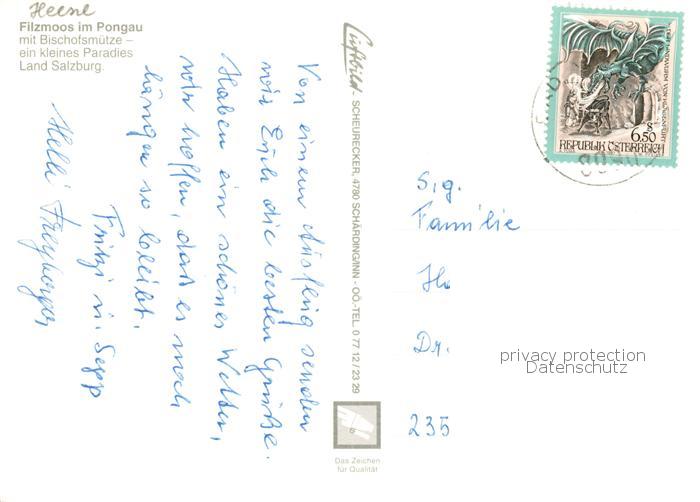 Heesl
Filzmoos im Pongau
mit Bischofsmütze –
ein kleines Paradies
Land Salzburg.
Von einem Ausflug senden
wir Euch die besten Grüße.
Haben ein schönes Wetter,
wir hoffen, daß es noch
länger so bleibt.
Fritzi u. Sepp
Helli Freyberger
Luftbild - SCHEURECKER, 4780 SCHÄRDING/INN - OÖ.-TEL. 0 77 12 / 23 29
Das Zeichen
für Qualität
DER LINDWURM VON KLAGENFURT
S
6.50
REPUBLIK ÖSTERREICH
S.g.
Familie
Dr.
235
privacy protection
Datenschutz